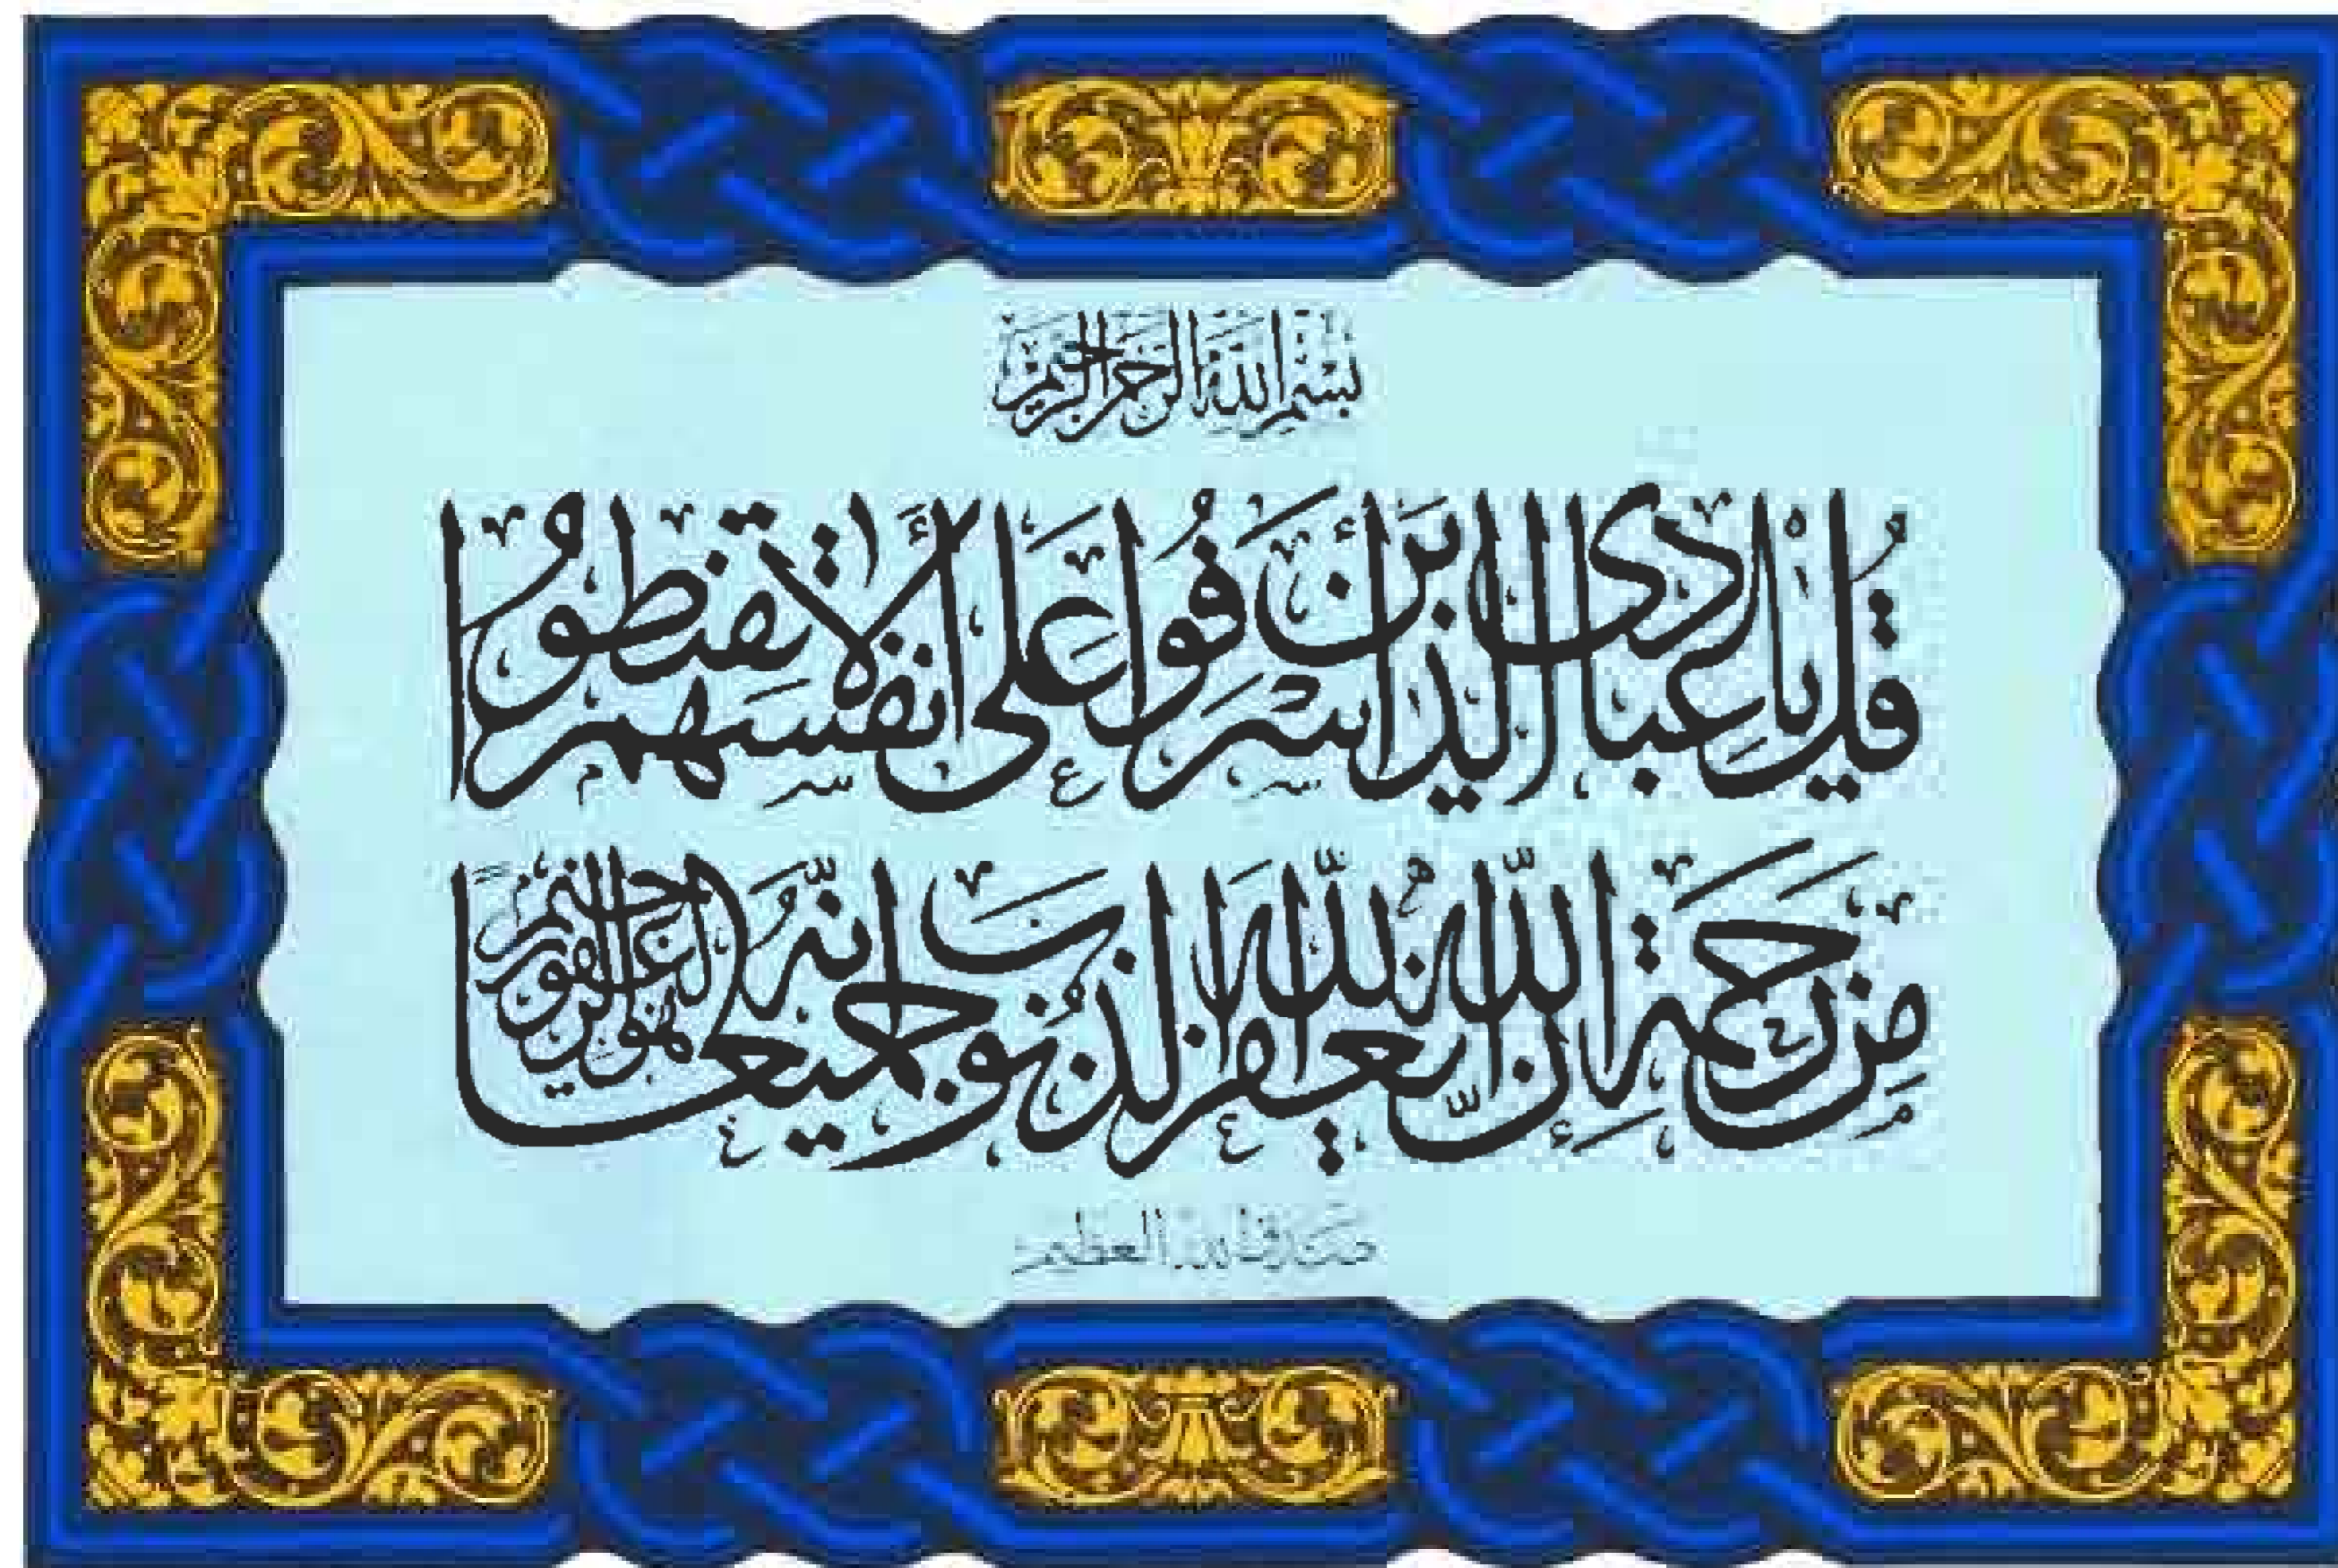 بسم الله الرحمن الرحيم
قل يا عبادى الذين أسرفوا على أنفسهم لا تقنطوا
من رحمة الله إن الله يغفر الذنوب جميعا إنه هو الغفور الرحيم
صدق الله العظيم